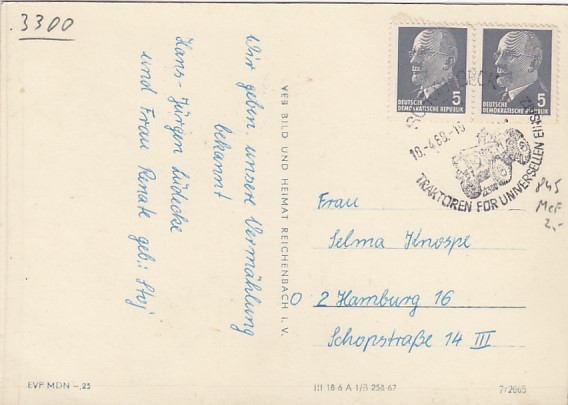 .3300
Wir geben unsere Vermählung
bekannt
Hans-Jürgen Lüdecke
und Frau Renate geb. Stoj
VEB BILD UND HEIMAT REICHENBACH I. V.
DEUTSCHE
DEMOKRATISCHE REPUBLIK 5
DEUTSCHE
DEMOKRATISCHE REPUBLIK 5
TRAKTOREN FÜR UNIVERSELLEN
845
McF
2,-
Frau
Selma Knospe
2 Hamburg 16
Schopstraße 14 III
EVP MDN -,25
III 18 6 A 1/B 258 67
7/2065